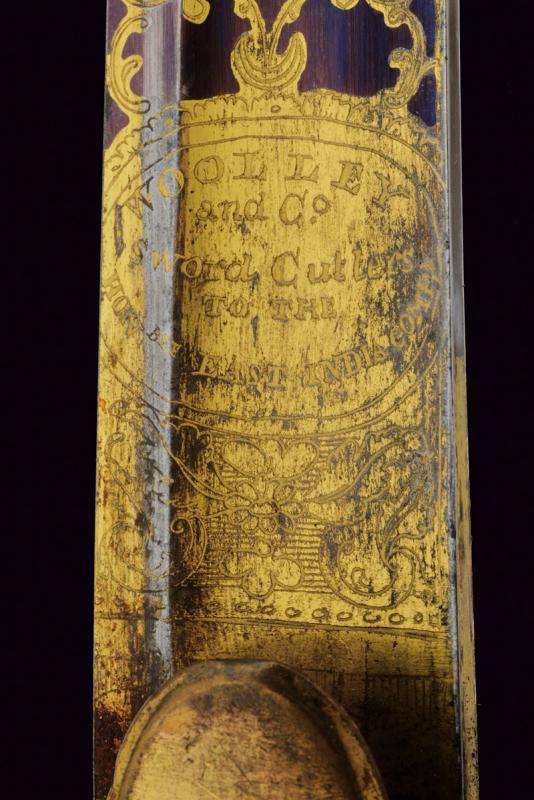 WOOLLEY
and Co
Sword Cutlers
TO THE
HONBLE EAST INDIA COMPY